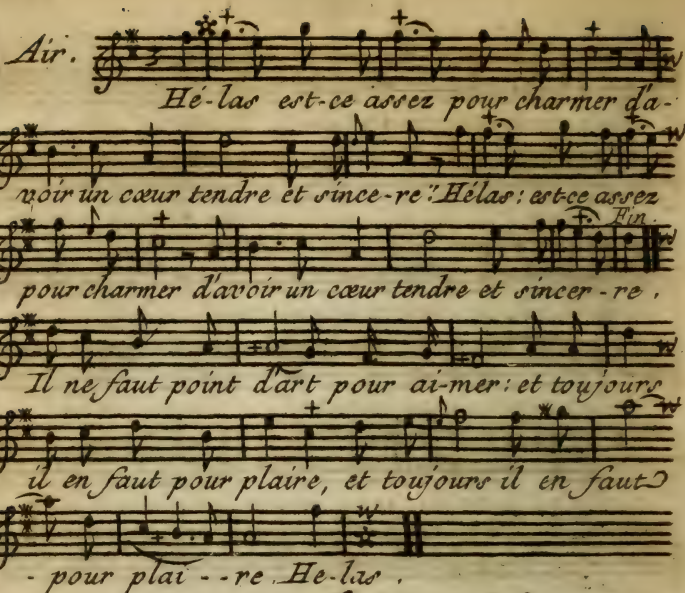 Air.
Hé-las est-ce assez pour charmer d'a-
voir un cœur tendre et since-re: Hélas: est-ce assez
Fin.
pour charmer d'avoir un cœur tendre et sincer-re.
Il ne faut point d'art pour ai-mer: et toujours
il en faut pour plaire, et toujours il en faut
- pour plai--re. He-las.